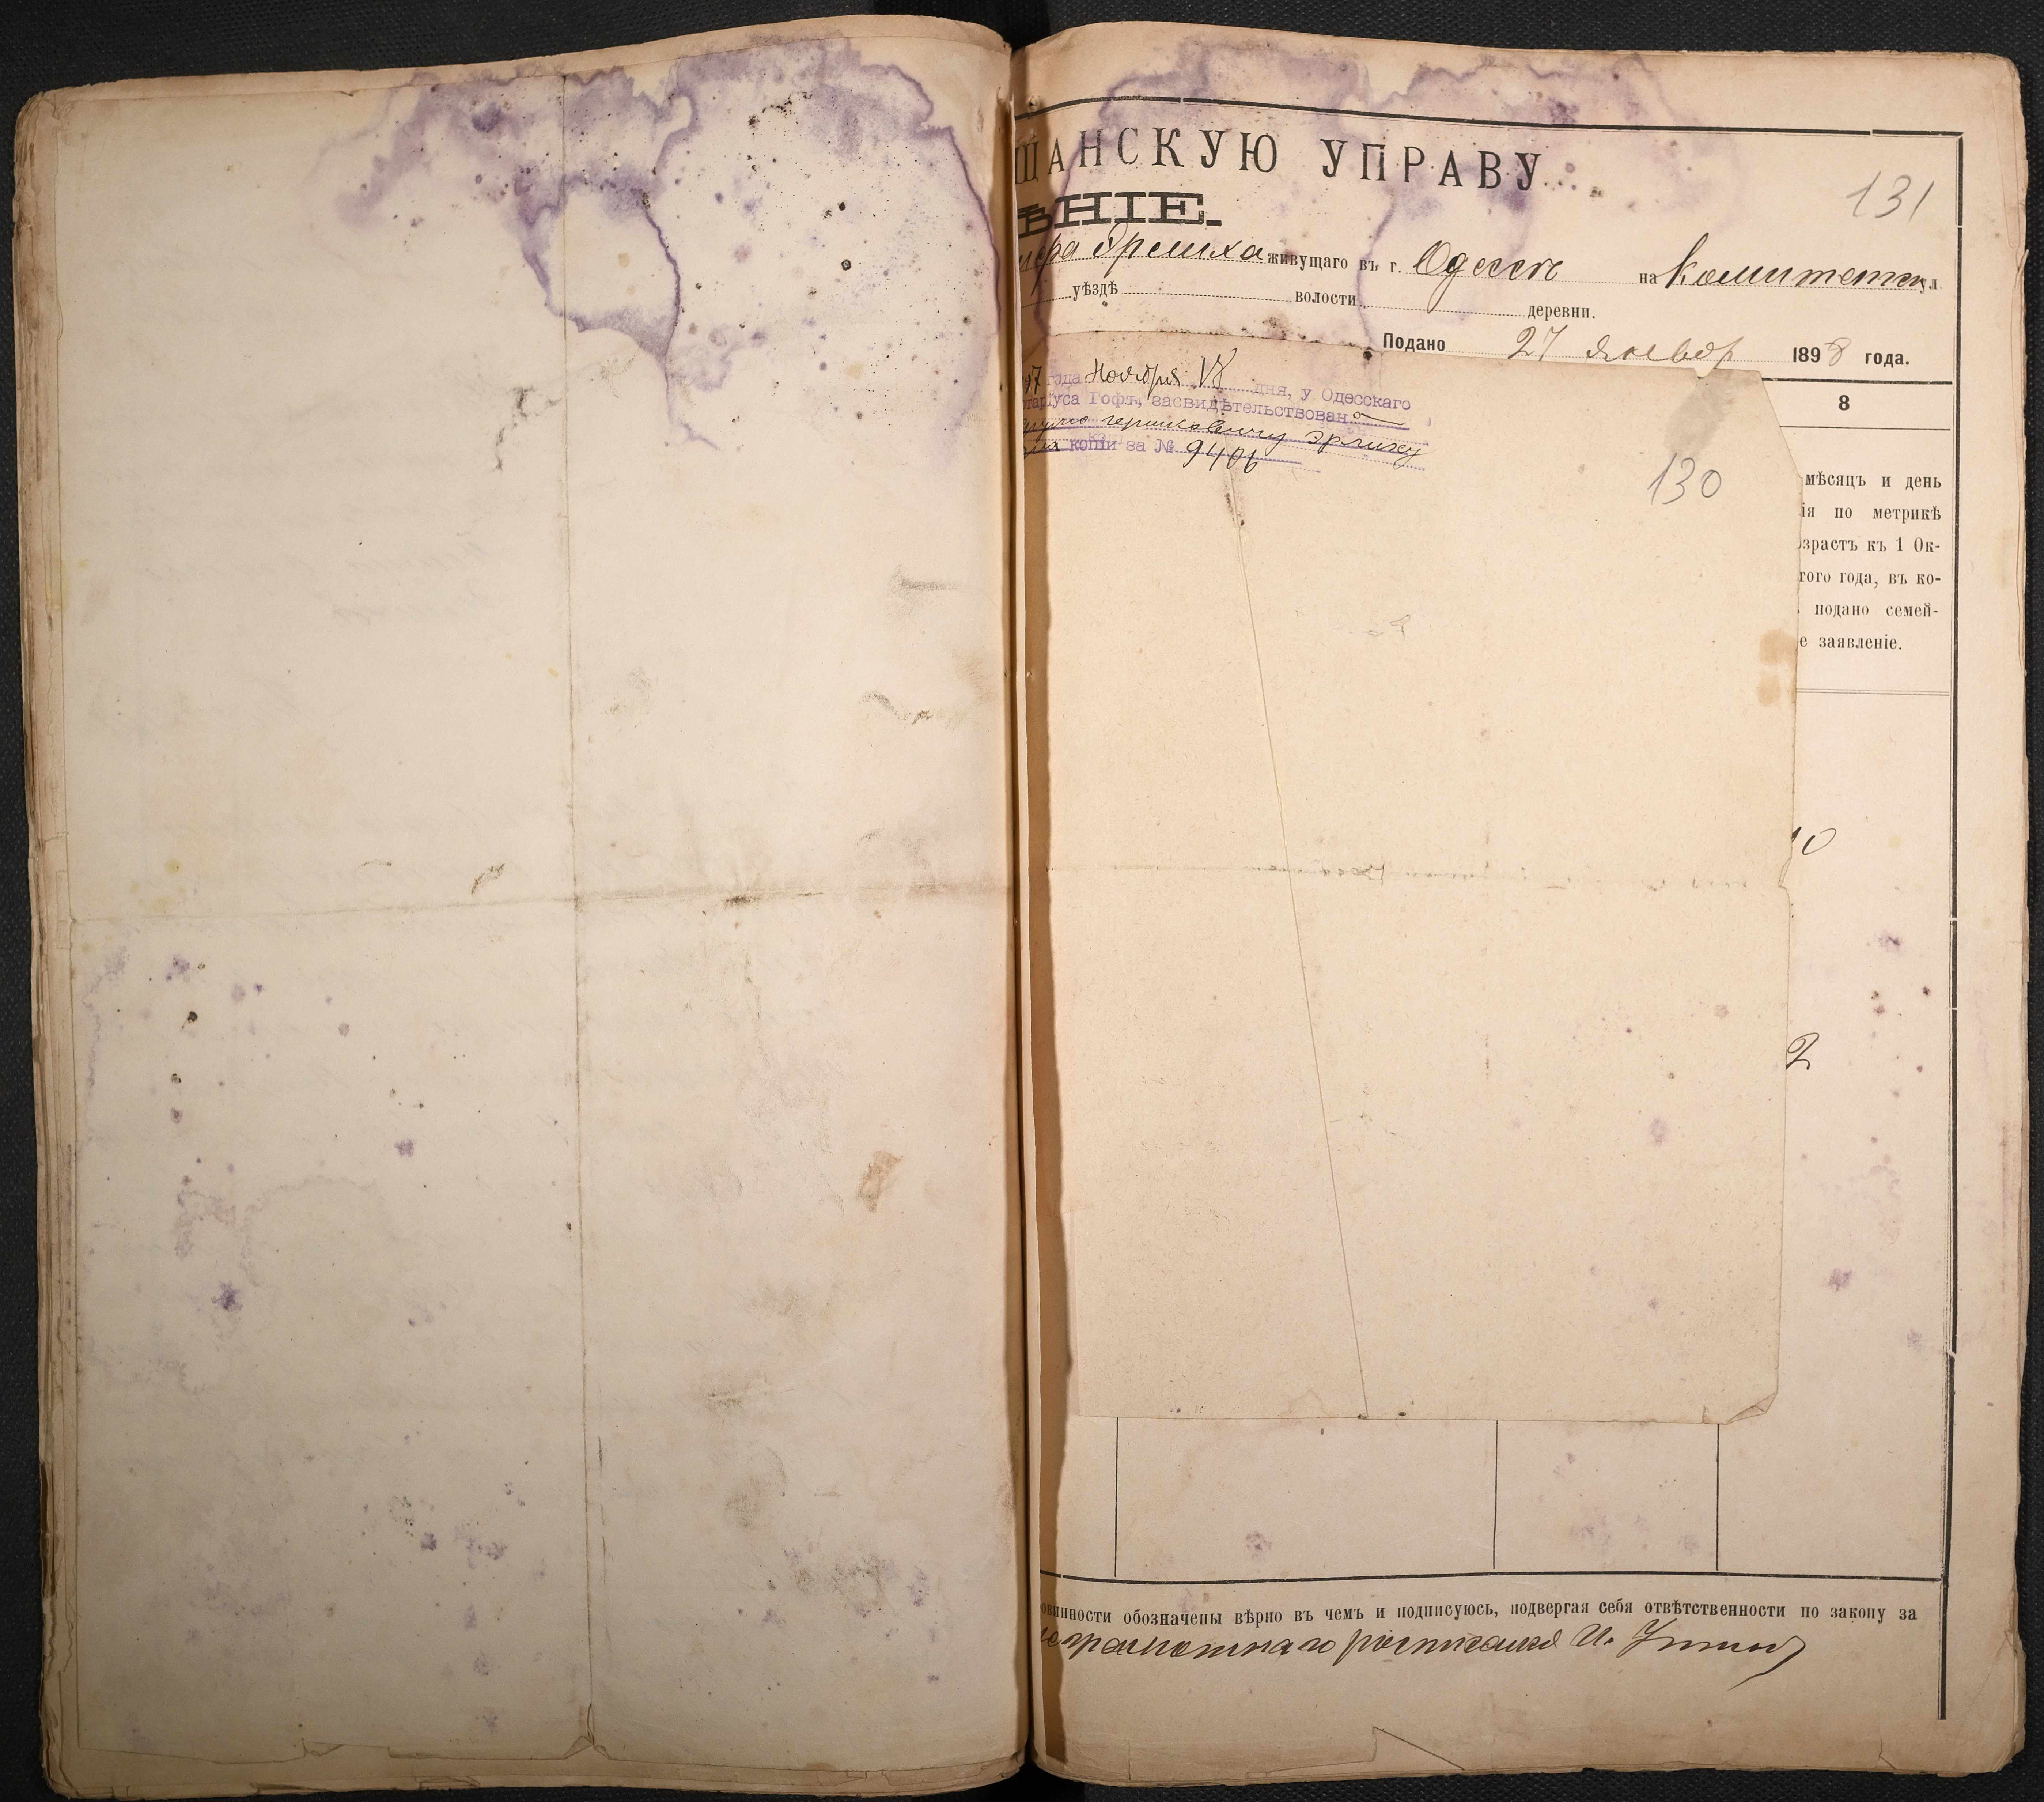 ЩАНСКУЮ УПРАВУ
131
ѢНІЕ.
живущаго въ г. Одессѣ на Комитетск ул
уѣздѣ волости деревни.
Подано 27 январ 1898 года.
97 года Ноября 18 дня, у Одесскаго
таріуса Гофъ, засвидѣтельствован
Эрлиху
копіи за № 9406
8
130
мѣсяцъ и день
ія по метрикѣ
озрастъ къ 1 Ок-
того года, въ ко-
подано семей-
е заявленіе.
10
2
овинности обозначены вѣрно въ чемъ и подписуюсь, подвергая себя отвѣтственности по закону за
неграмотнаго росписался И.